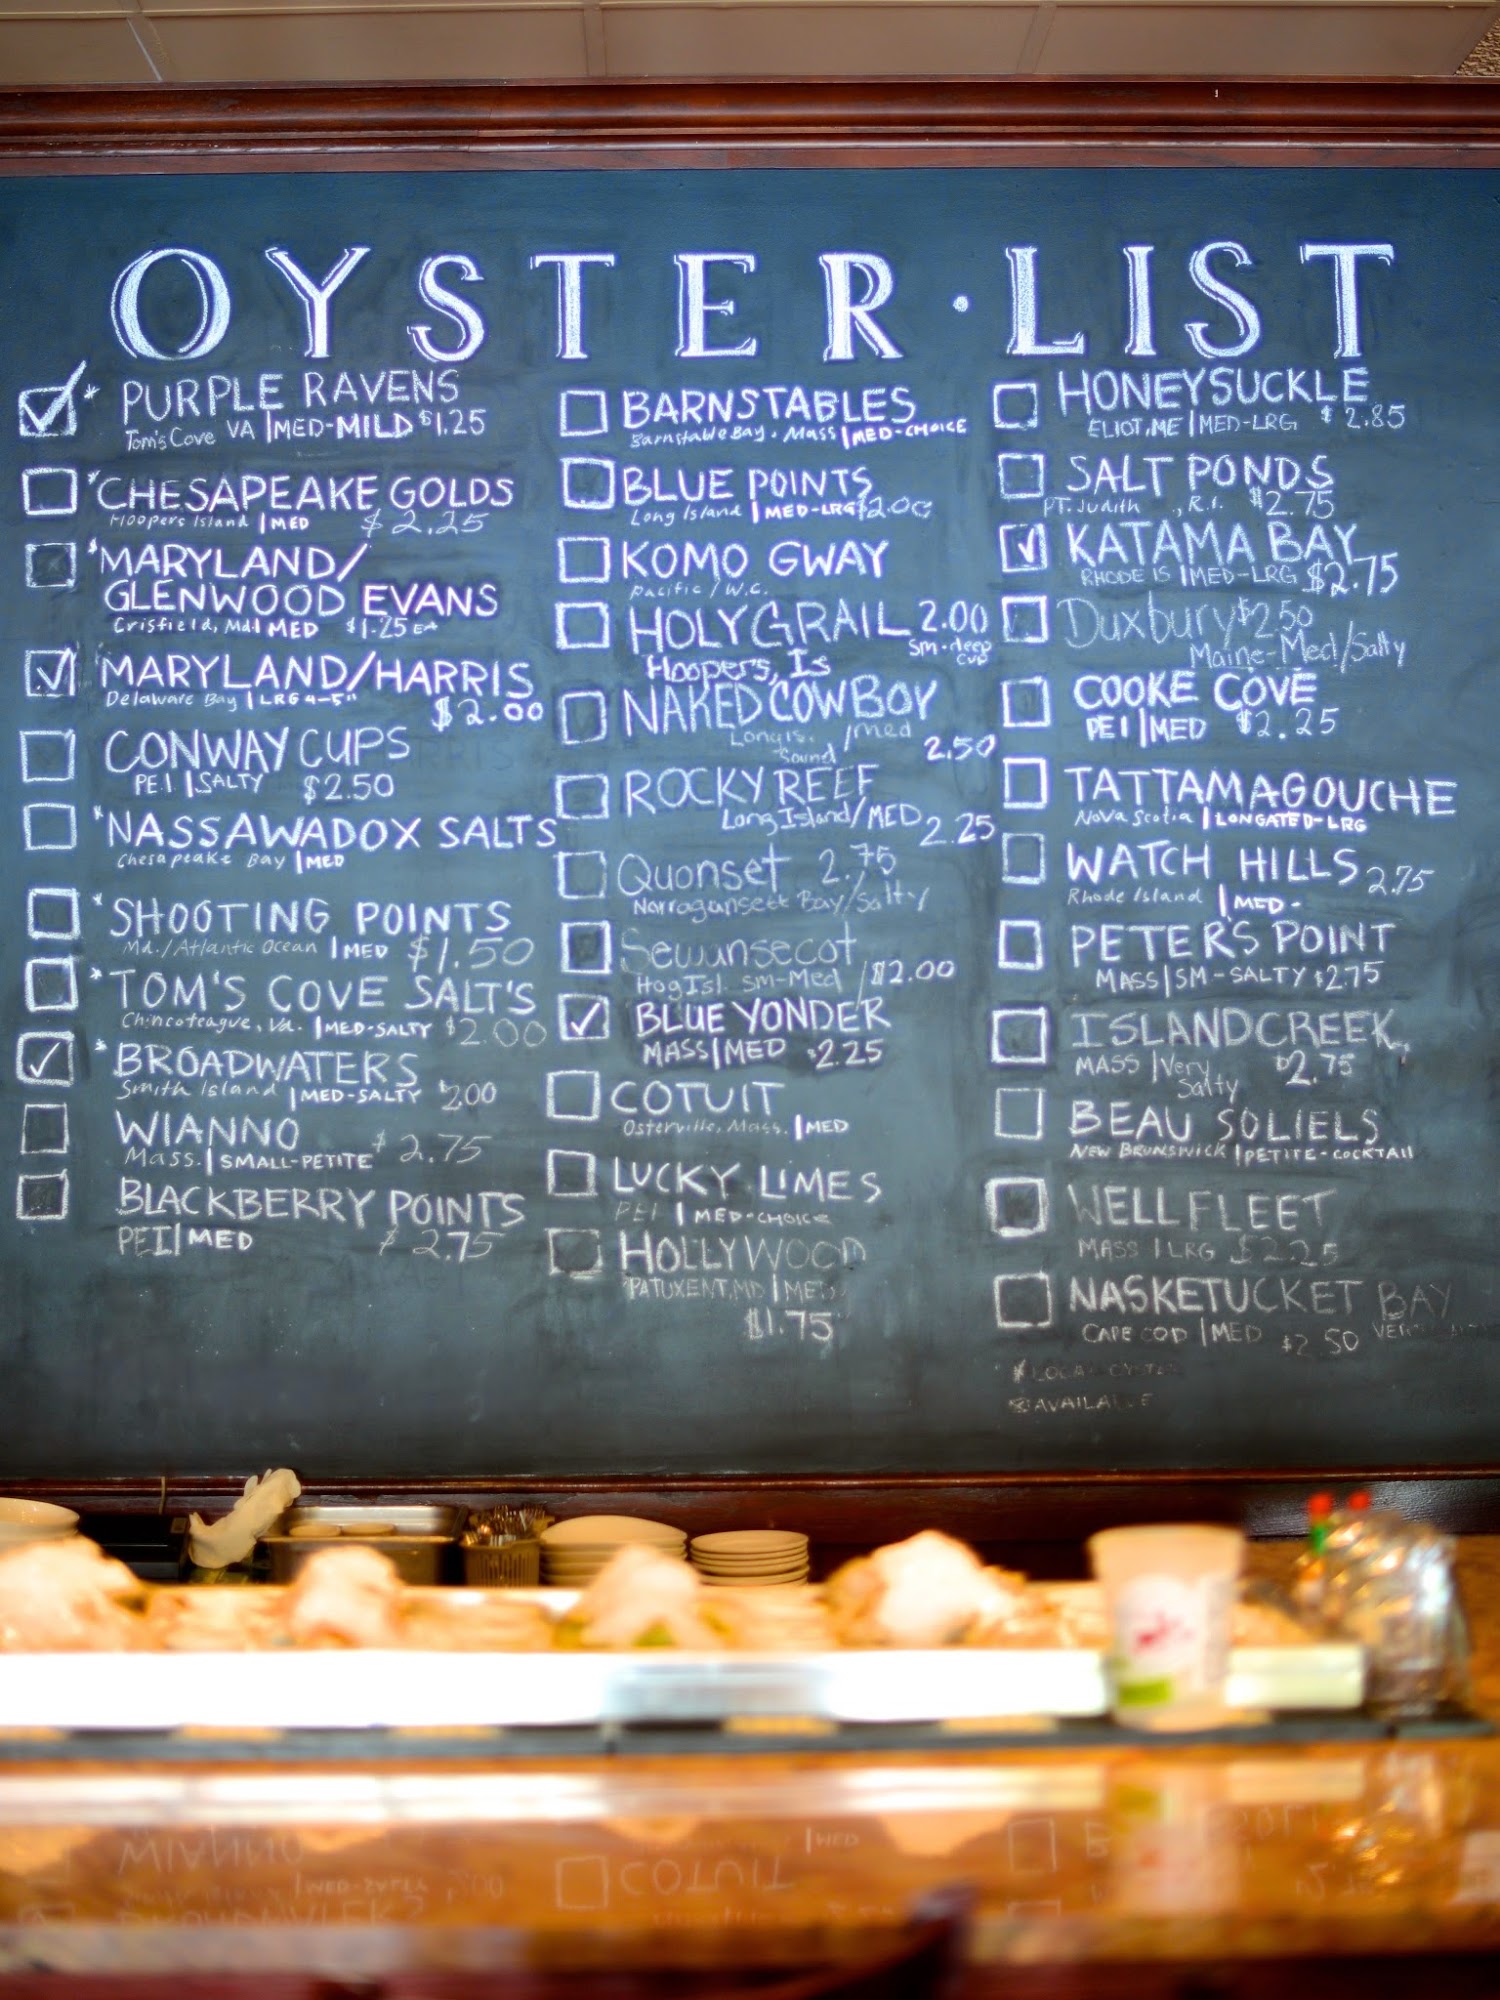 OYSTER · LIST
* PURPLE RAVENS
Tom's Cove VA | MED-MILD $1.25
* CHESAPEAKE GOLDS
Hoopers Island | MED $2.25
* MARYLAND/
GLENWOOD EVANS
Crisfield, Md. | MED $1.25 EA
* MARYLAND/HARRIS
Delaware Bay | LRG 4-5"
$2.00
CONWAY CUPS
PEI | SALTY $2.50
* NASSAWADOX SALTS
Chesapeake Bay | MED
* SHOOTING POINTS
Md./Atlantic Ocean | MED $1.50
* TOM'S COVE SALT'S
Chincoteague, Va. | MED-SALTY $2.00
* BROADWATERS
Smith Island | MED-SALTY $2.00
WIANNO
Mass. | SMALL-PETITE $2.75
BLACKBERRY POINTS
PEI | MED $2.75
BARNSTABLES
Barnstable Bay, Mass | MED-CHOICE
BLUE POINTS
Long Island | MED-LRG $2.00
KOMO GWAY
Pacific / W.C.
HOLY GRAIL 2.00
Sm-deep
cup
Hoopers, Is
NAKED COWBOY
Long Is. / med
Sound 2.50
ROCKY REEF
Long Island / MED
2.25
Quonset 2.75
Narragansett Bay/Salty
Sewansecot
Hog Isl. sm-Med / $2.00
BLUE YONDER
MASS | MED $2.25
COTUIT
Osterville, Mass. | MED
LUCKY LIMES
PEI | MED-CHOICE
HOLLYWOOD
PATUXENT, MD | MED
$1.75
HONEYSUCKLE
ELIOT, ME | MED-LRG $2.85
SALT PONDS
PT. Judith , R.I. $2.75
KATAMA BAY
RHODE IS | MED-LRG $2.75
Duxbury $2.50
Maine-Med/Salty
COOKE COVE
PEI | MED $2.25
TATTAMAGOUCHE
Nova Scotia | LONGATED-LRG
WATCH HILLS 2.75
Rhode Island | MED-
PETER'S POINT
MASS | SM-SALTY $2.75
ISLAND CREEK,
MASS | Very $2.75
Salty
BEAU SOLIELS
NEW BRUNSWICK | PETITE-COCKTAIL
WELLFLEET
MASS | LRG $2.25
NASKETUCKET BAY
CAPE COD | MED $2.50
* LOCAL OYSTER
AVAILABLE